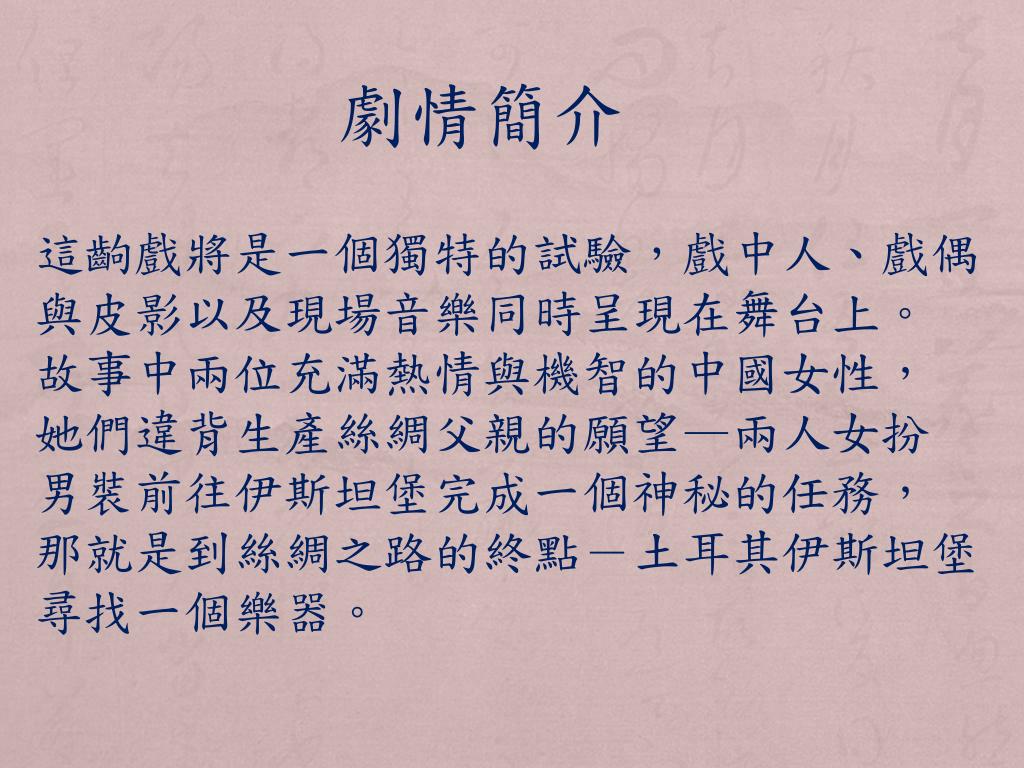 劇情簡介
這齣戲將是一個獨特的試驗，戲中人、戲偶
與皮影以及現場音樂同時呈現在舞台上。
故事中兩位充滿熱情與機智的中國女性，
她們違背生產絲綢父親的願望—兩人女扮
男裝前往伊斯坦堡完成一個神秘的任務，
那就是到絲綢之路的終點－土耳其伊斯坦堡
尋找一個樂器。